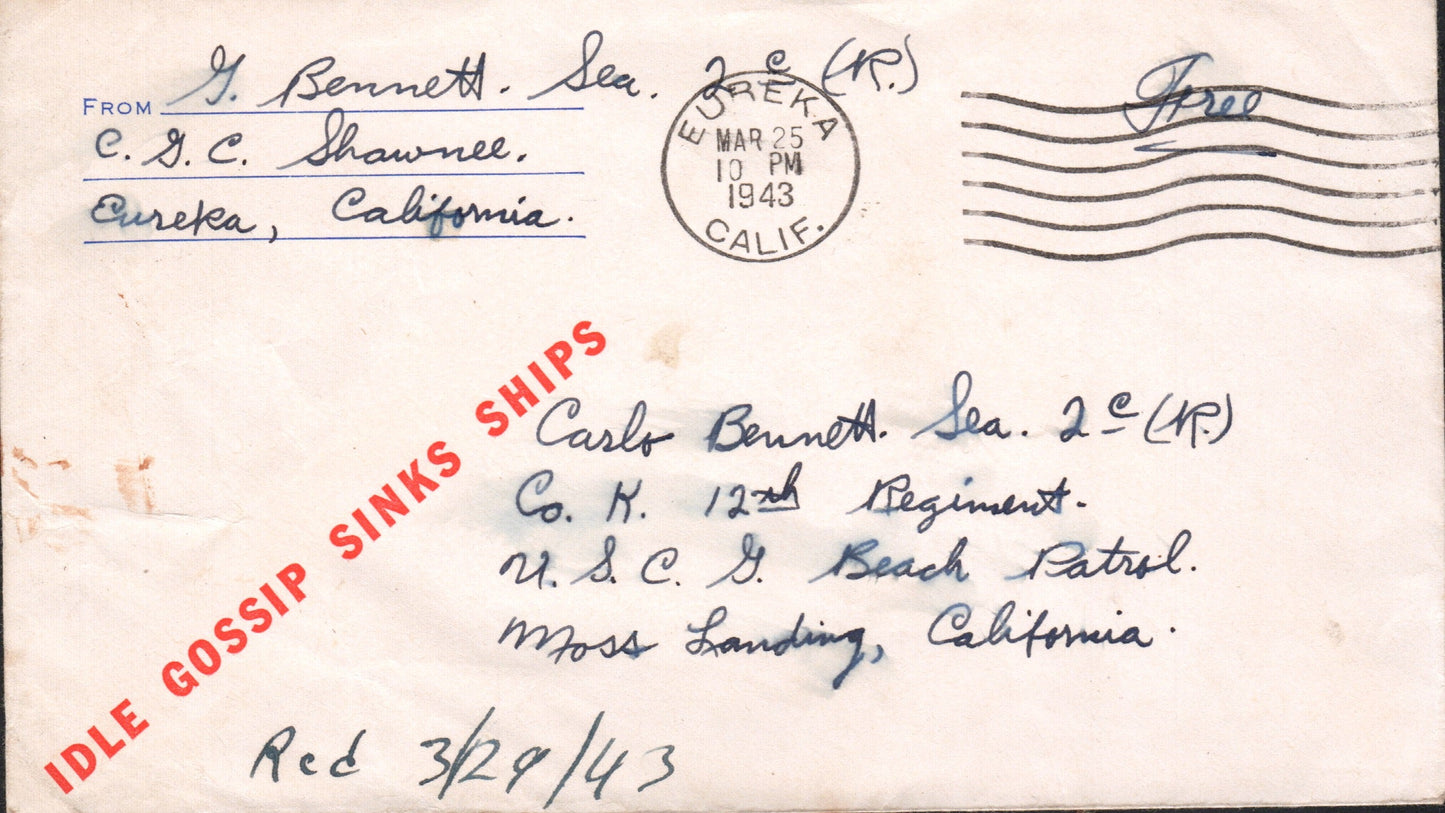 FROM G. Bennett. Sea. 2 c (R.)
C. G. C. Shawnee.
Eureka, California.
EUREKA
MAR 25
10 PM
1943
CALIF.
Free
IDLE GOSSIP SINKS SHIPS
Carlo Bennett. Sea. 2 c (R.)
Co. K. 12th Regiment.
U. S. C. G. Beach Patrol.
Moss Landing, California.
Rcd 3/29/43